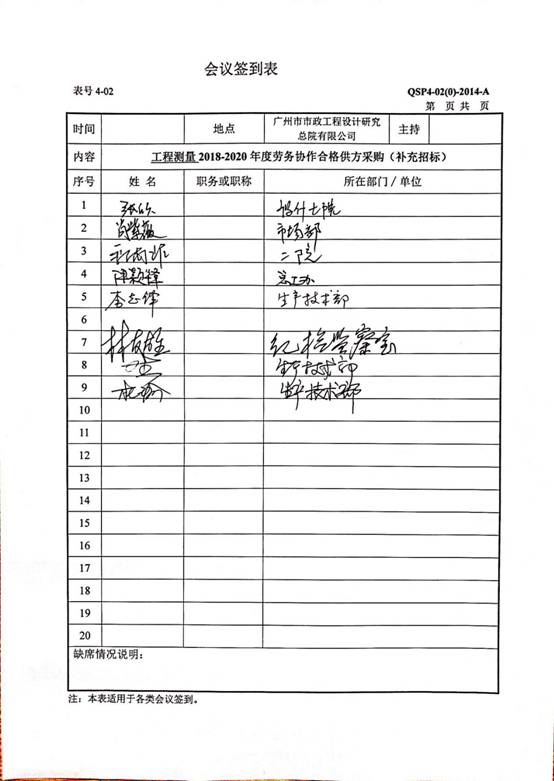 会议签到表
表号 4-02 QSP4-02(0)-2014-A
第 页 共 页
时间 地点 广州市市政工程设计研究总院有限公司 主持
内容 工程测量 2018-2020 年度劳务协作合格供方采购（补充招标）
序号 姓 名 职务或职称 所在部门 / 单位
1 设计七院
2 市场部
3 二院
4 陈颖锋 总工办
5 李志伟 生产技术部
6
7 林友雄 纪检监察室
8 生产技术部
9 生产技术部
10
11
12
13
14
15
16
17
18
19
20
缺席情况说明：
注：本表适用于各类会议签到。